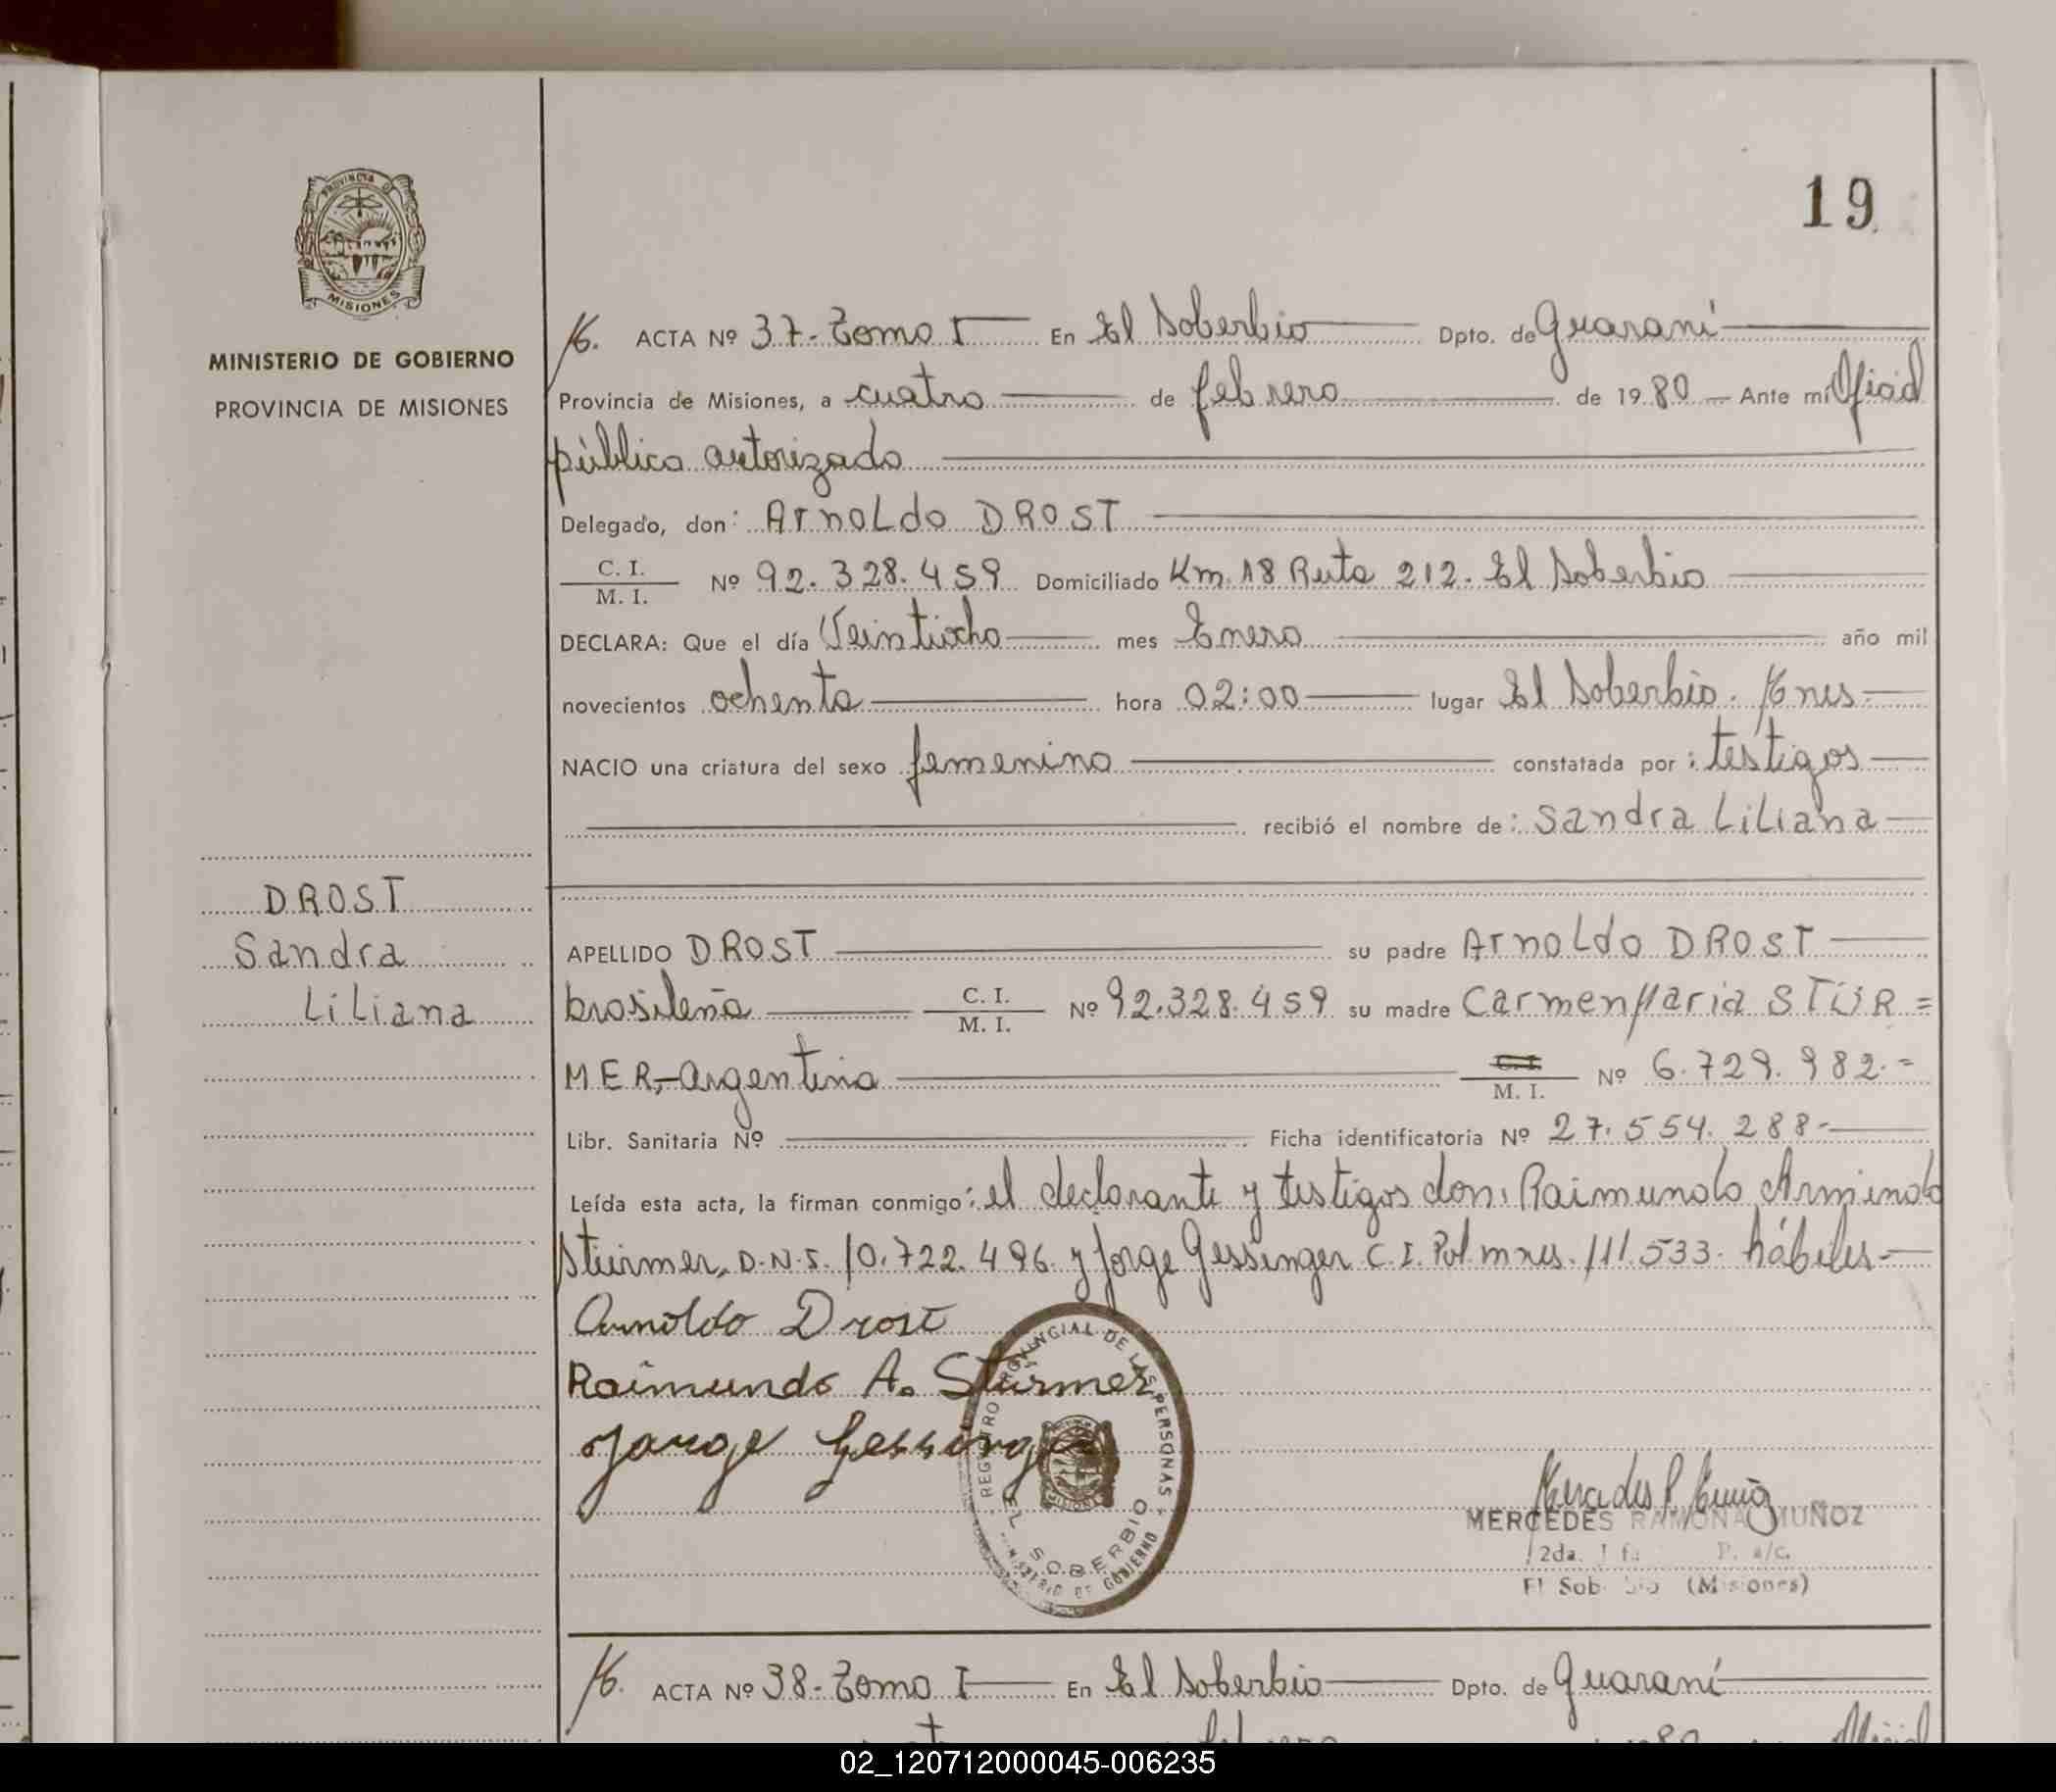 19
PROVINCIA D
MISIONES
MINISTERIO DE GOBIERNO
PROVINCIA DE MISIONES
ACTA Nº 37- Tomo I En El Soberbio Dpto. de Guaraní
Provincia de Misiones, a cuatro de febrero de 1980 Ante mí Oficial
público autorizado
Delegado, don: Arnoldo DROST
C. I. / M. I. Nº 92.328.459 Domiciliado Km. 18 Ruta 212. El Soberbio
DECLARA: Que el día Veintiocho mes Enero año mil
novecientos ochenta hora 02:00 lugar El Soberbio. Mnes
NACIO una criatura del sexo femenino constatada por: testigos
recibió el nombre de: Sandra Liliana
DROST
Sandra
Liliana
APELLIDO DROST su padre Arnoldo DROST
brasileña C. I. / M. I. Nº 92.328.459 su madre Carmen Maria STÜR=
MER,- Argentina C. I. / M. I. Nº 6.729.982.=
Libr. Sanitaria Nº Ficha identificatoria Nº 27.554.288-
Leída esta acta, la firman conmigo: el declarante y testigos don: Raimundo Armindo
Stürmer, D.N.I. 10.722.496. y Jorge Gessinger C.I. Pol mnes. 111.533. hábiles-
Arnoldo Drost
Raimundo A. Stürmer
Jorge Gessinger
REGISTRO PROVINCIAL DE LAS PERSONAS
EL SOBERBIO
MINISTERIO DE GOBIERNO
Mercedes R. Muñoz
MERCEDES RAMONA MUÑOZ
2da.
El Soberbio (Misiones)
ACTA Nº 38- Tomo I En El Soberbio Dpto. de Guaraní
02_120712000045-006235